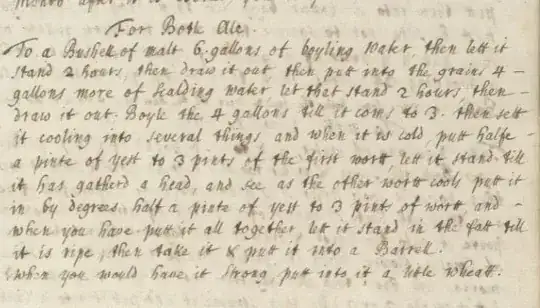 For Botle Ale.
To a Bushell of malt 6 gallons of boyling water, then lett it
stand 2 hours, then draw it out then putt into the grains 4 –
gallons more of scalding water let that stand 2 hours, then –
draw it out. Boyle the 4 gallons till it coms to 3. then sett
it cooling into several things and when it is cold putt halfe –
a pinte of yest to 3 pints of the first wort let it stand till
it has gatherd a head, and see as the other wort cools put it
in by degrees half a pinte of yest to 3 pints of wort and –
when you have putt it all together, let it stand in the fatt till
it is ripe, then take it & putt it into a Barrell.
when you would have it strong putt into it a litle wheatt.